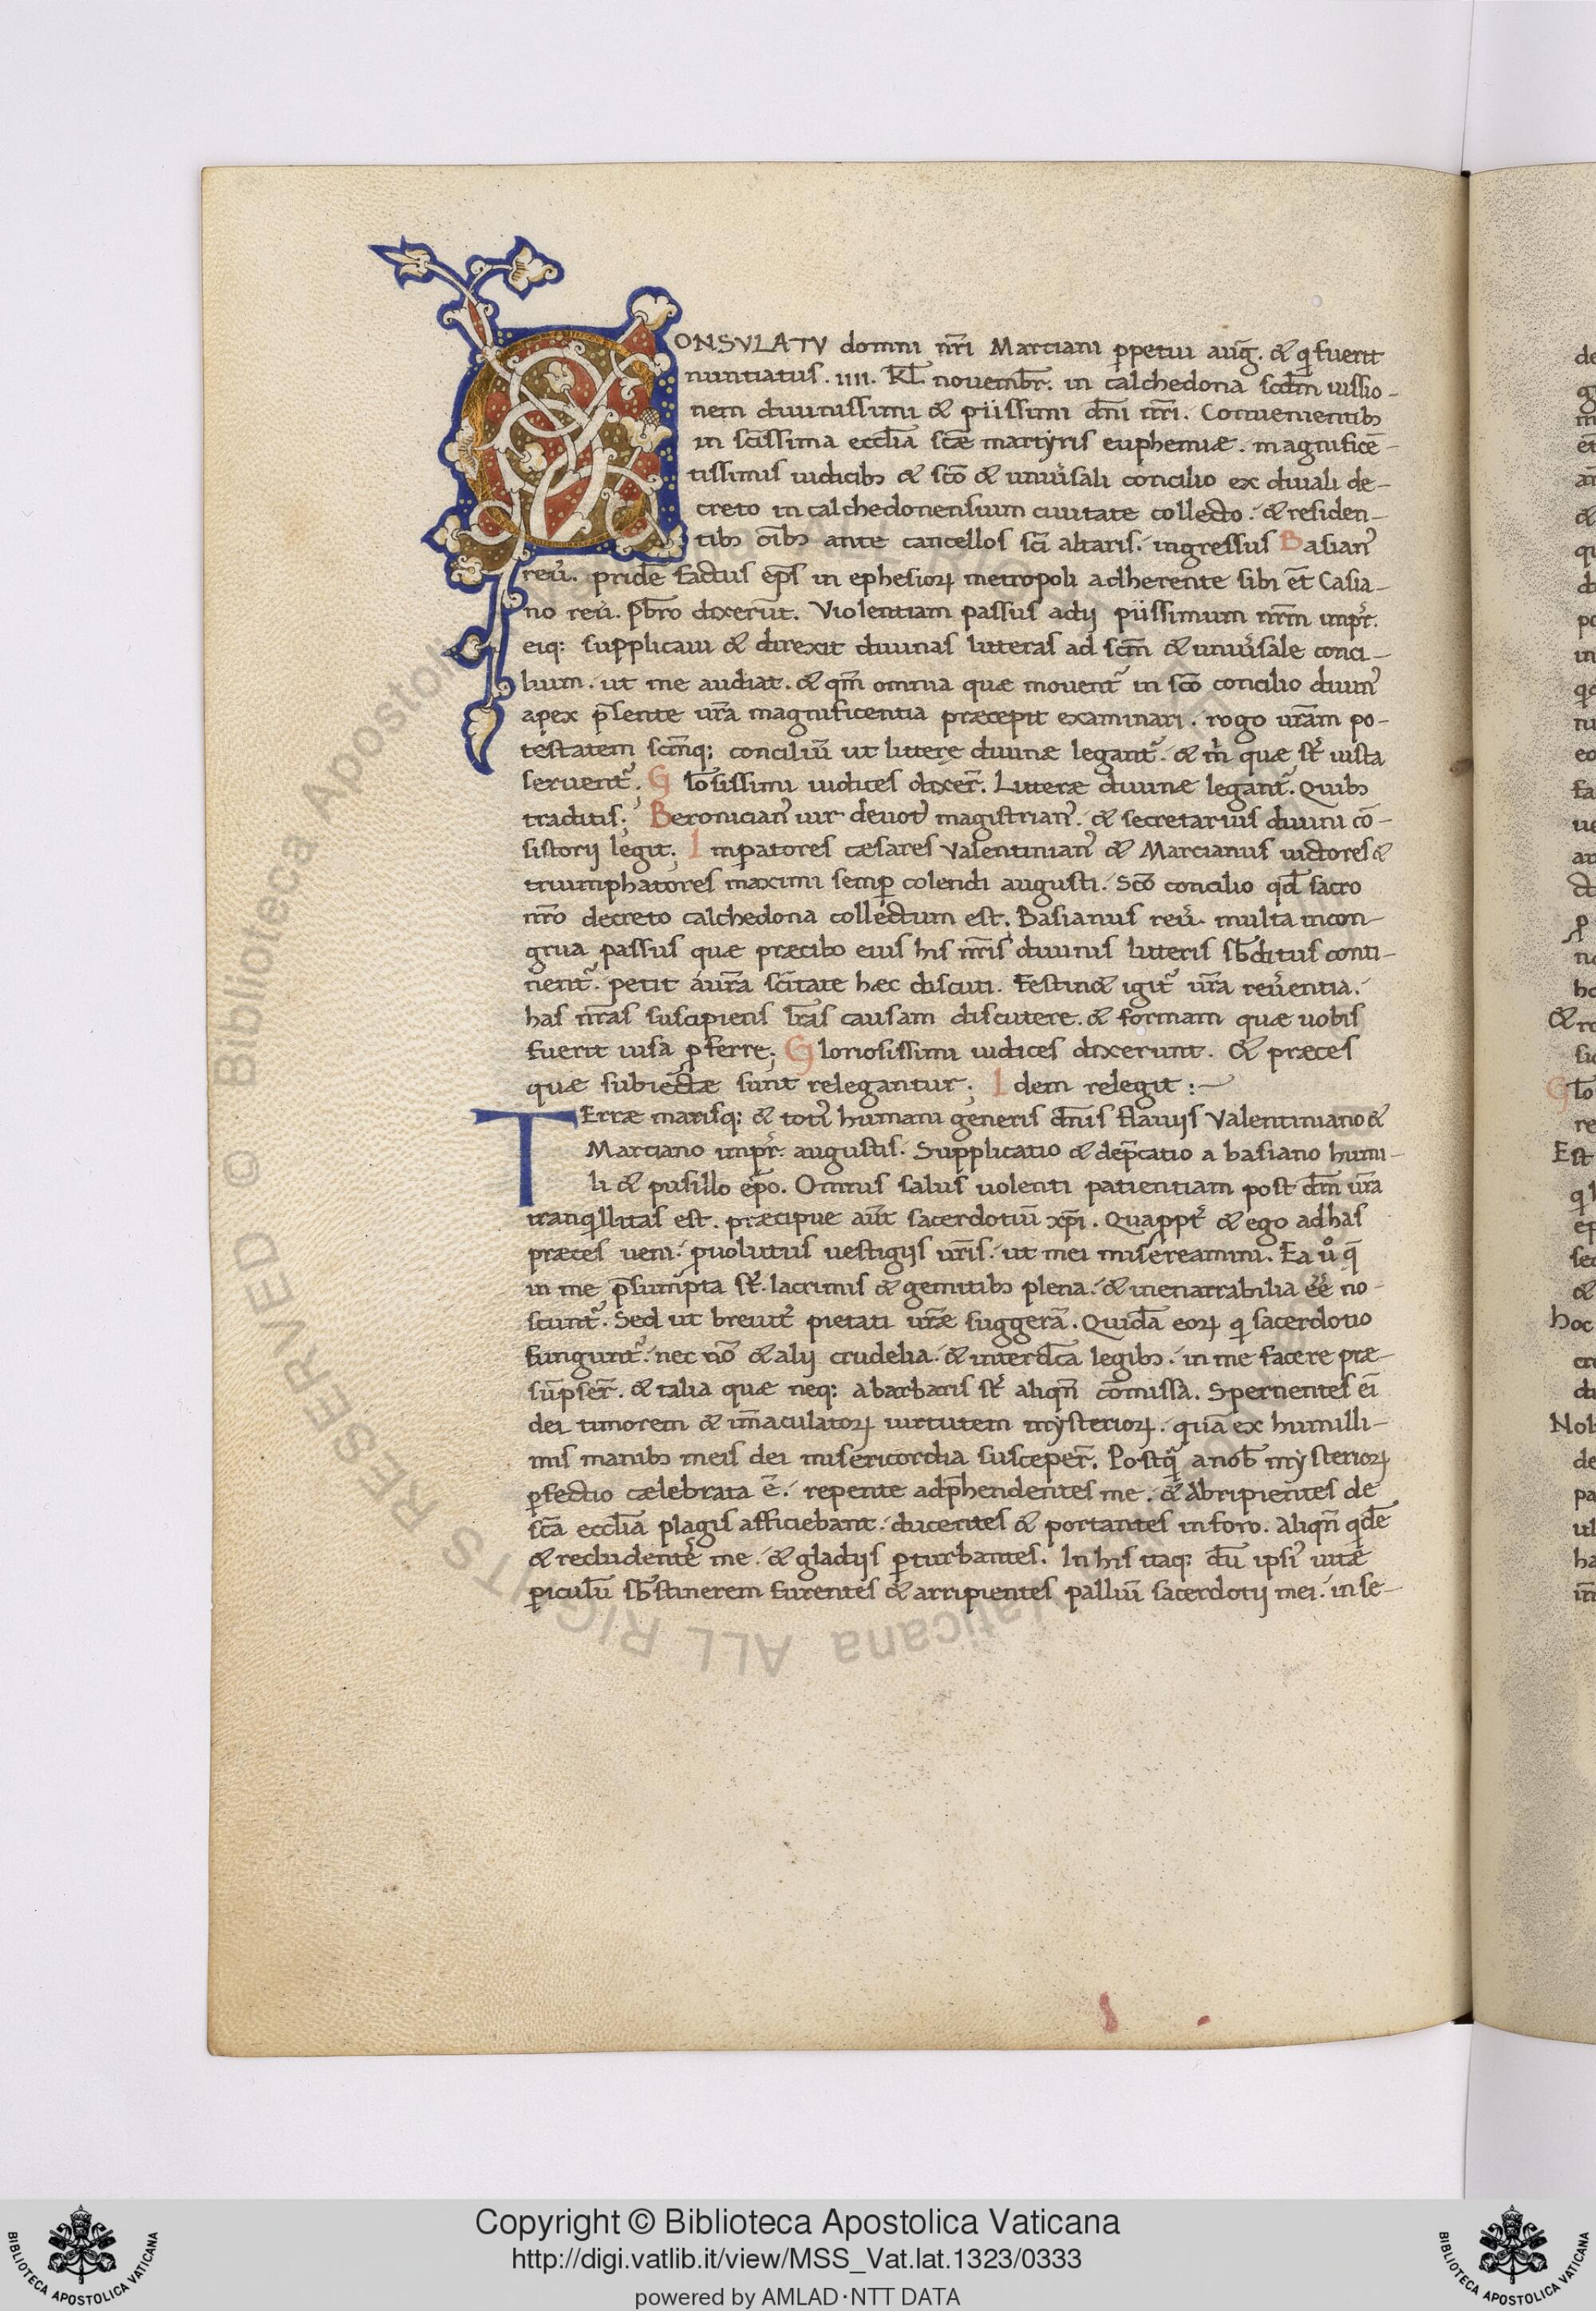 CONSVLATV domni nr̄i Marciani ꝑpetui auḡ. & q fuerit
nuntiatus. IIII. Kl̄. novembr̄. in calchedona scd̄m iussio-
nem diuinissimi & piissimi dn̄i nr̄i. Conuenientibꝫ
in sc̄issima eccl̄ia sc̄æ martyris euphemiæ. magnificē-
tissimis iudicibꝫ & sc̄o & uniu̓sali concilio ex diuali de-
creto in calchedonensium ciuitate collecto. & residen-
tibꝫ oī̄bꝫ ante cancellos sc̄i altaris. ingressus Basian᾽
reu̓. pridē factus ep̄s in ephesioꝝ metropoli adherente sibi et̄ Casia-
no reu̓. Pb̄ro dixerūt. Violentiam passus adij piissimum nr̄m imp̄r.
eiq: supplicaui & direxit diuinas litteras ad sc̄m & uniu̓sale conci-
lium. ut me audiat. & qm̄ omnia quæ mouent᾽ in sc̄o concilio diuin᾽
apex p̄sente ur̄a magnificentia præcepit examinari. rogo ur̄am po-
testatem sc̄mq; conciliū ut litterę diuinæ legant᾽. & m̓ quæ st᾽ iusta
seruent᾽; Glōsissimi iudices dixer̄. Litteræ diuinæ legant᾽. Quibꝫ
traditis; Beronician᾽ uir deuot᾽ magistrian᾽. & secretarius diuini cō-
sistorij legit; Imꝑatores cæsares Valentinian᾽ & Marcianus uictores &
triumphatores maximi semꝑ colendi augusti. Sc̄o concilio qd̄ sacro
nr̄o decreto calchedona collectum est; Basianus reu̓. multa incon-
grua passus quæ præcibo eius his nr̄is diuinis litteris sb̄ditus conti-
nent᾽. petit áur̄a sc̄itate hæc discuti. Festin& igit᾽ ur̄a reu̓entia.
has nr̄as suscipiens lr̄as causam discutere. & formam quæ uobis
fuerit uisa ꝓferre; Gloriosissimi iudices dixerunt. & præces
quæ subiectæ sunt relegantur; Idem relegit:~
TErræ marisq: & toti᾽ humani generis dn̄is flauijs Valentiniano &
Marciano imp̄r. augustis. Supplicatio & dep̄catio a basiano humi-
li & pusillo ep̄o. Omnis salus uolenti patientiam post dm̄ ur̄a
tranqllitas est. præcipue aūt sacerdotiū xp̄i. Quappt᾽ & ego ad has
præces ueni. ꝓuolutus uestigijs ur̄is. ut mei misereamini. Ea uº q̄
in me p̄sumpta st᾽. lacrimis & gemitibꝫ plena. & inenarrabilia eē̓ no-
scunt᾽. Sed ut breuit᾽ pietati ur̄æ suggerā. Quidā eoꝝ q sacerdotio
fungunt᾽. nec nō & alij crudelia. & interdc̄a legibꝫ. in me facere præ-
sūpser̄. & talia quæ neq: a barbaris st᾽ aliqn̄ cōmissa. Spernentes ei̅
dei timorem & im̄aculatoꝝ uirtutem mysterioꝝ. quā ex humilli-
mis manibꝫ meis dei misericordia susceper̄. Postq̄ a nob̄ mysterioꝝ
ꝑfectio cælebrata ē. repente adp̄hendentes me. & Abripientes de
sc̄a eccl̄ia plagis afficiebant. ducentes & portantes in foro. Aliqn̄ qdē
& recludente᾽ me. & gladijs ꝑturbantes. In his itaq: dū ipsi᾽ uitæ
ꝑiculū sb̄stinerem furentes & arripientes palliū sacerdotij mei. in se-
Copyright © Biblioteca Apostolica Vaticana
http://digi.vatlib.it/view/MSS_Vat.lat.1323/0333
powered by AMLAD·NTT DATA